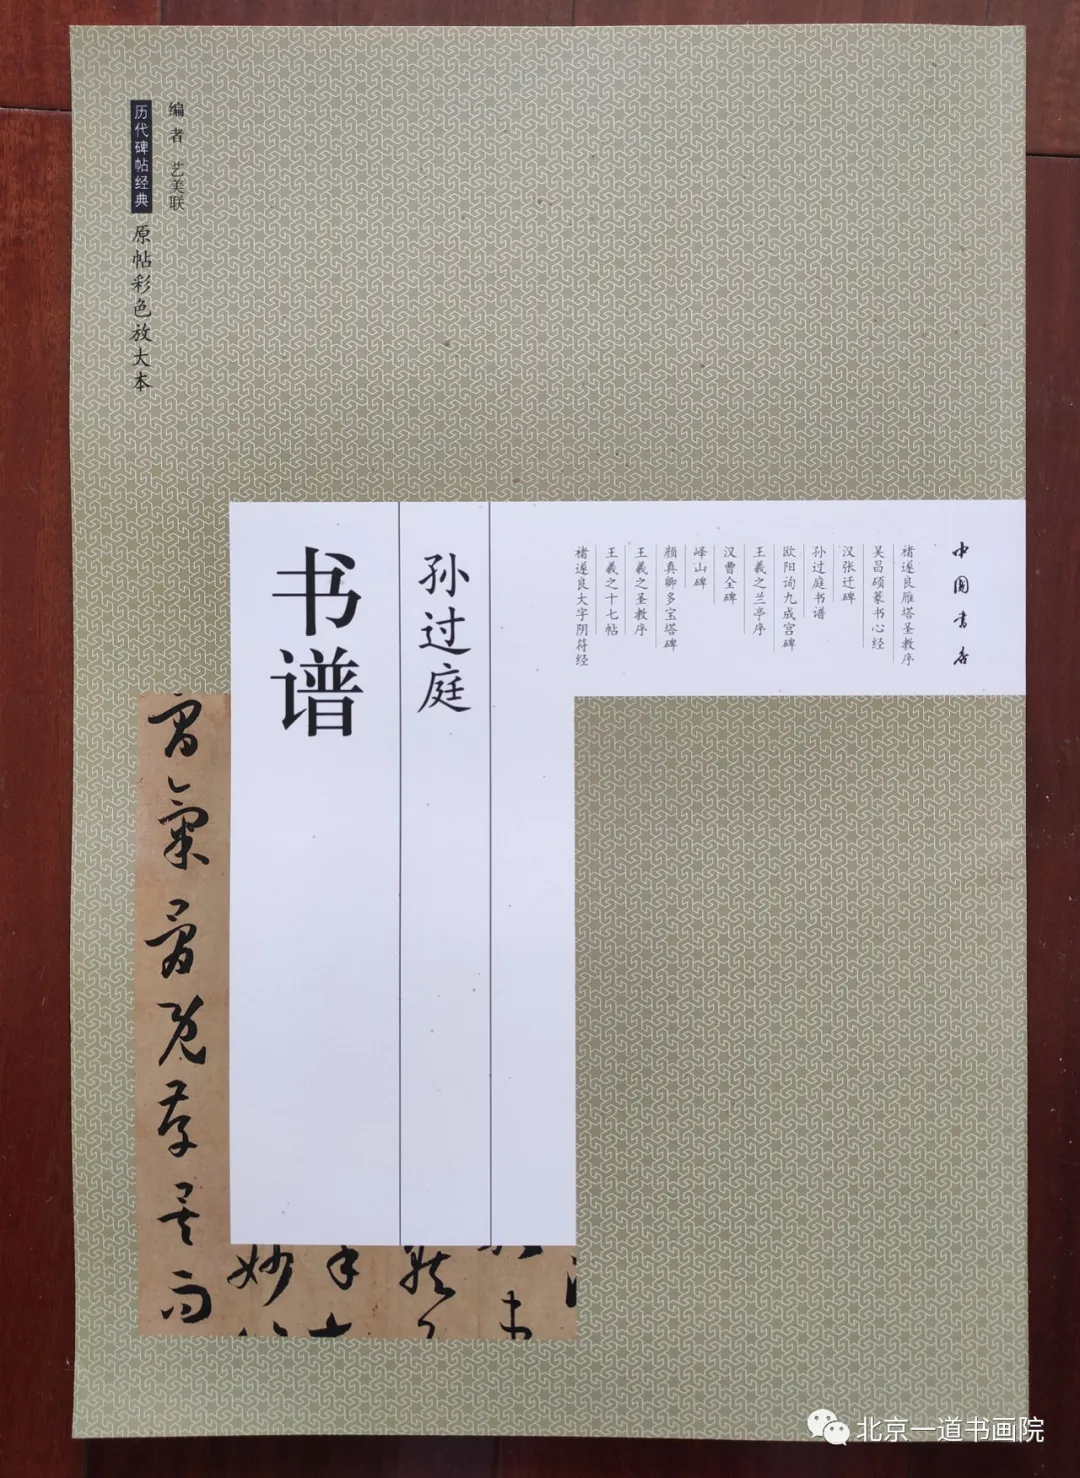 编者 艺美联
历代碑帖经典 原帖彩色放大本
中国书店
褚遂良雁塔圣教序
吴昌硕篆书心经
汉张迁碑
孙过庭书谱
欧阳询九成宫碑
王羲之兰亭序
汉曹全碑
峄山碑
颜真卿多宝塔碑
王羲之圣教序
王羲之十七帖
褚遂良大字阴符经
孙过庭
书谱
北京一道书画院